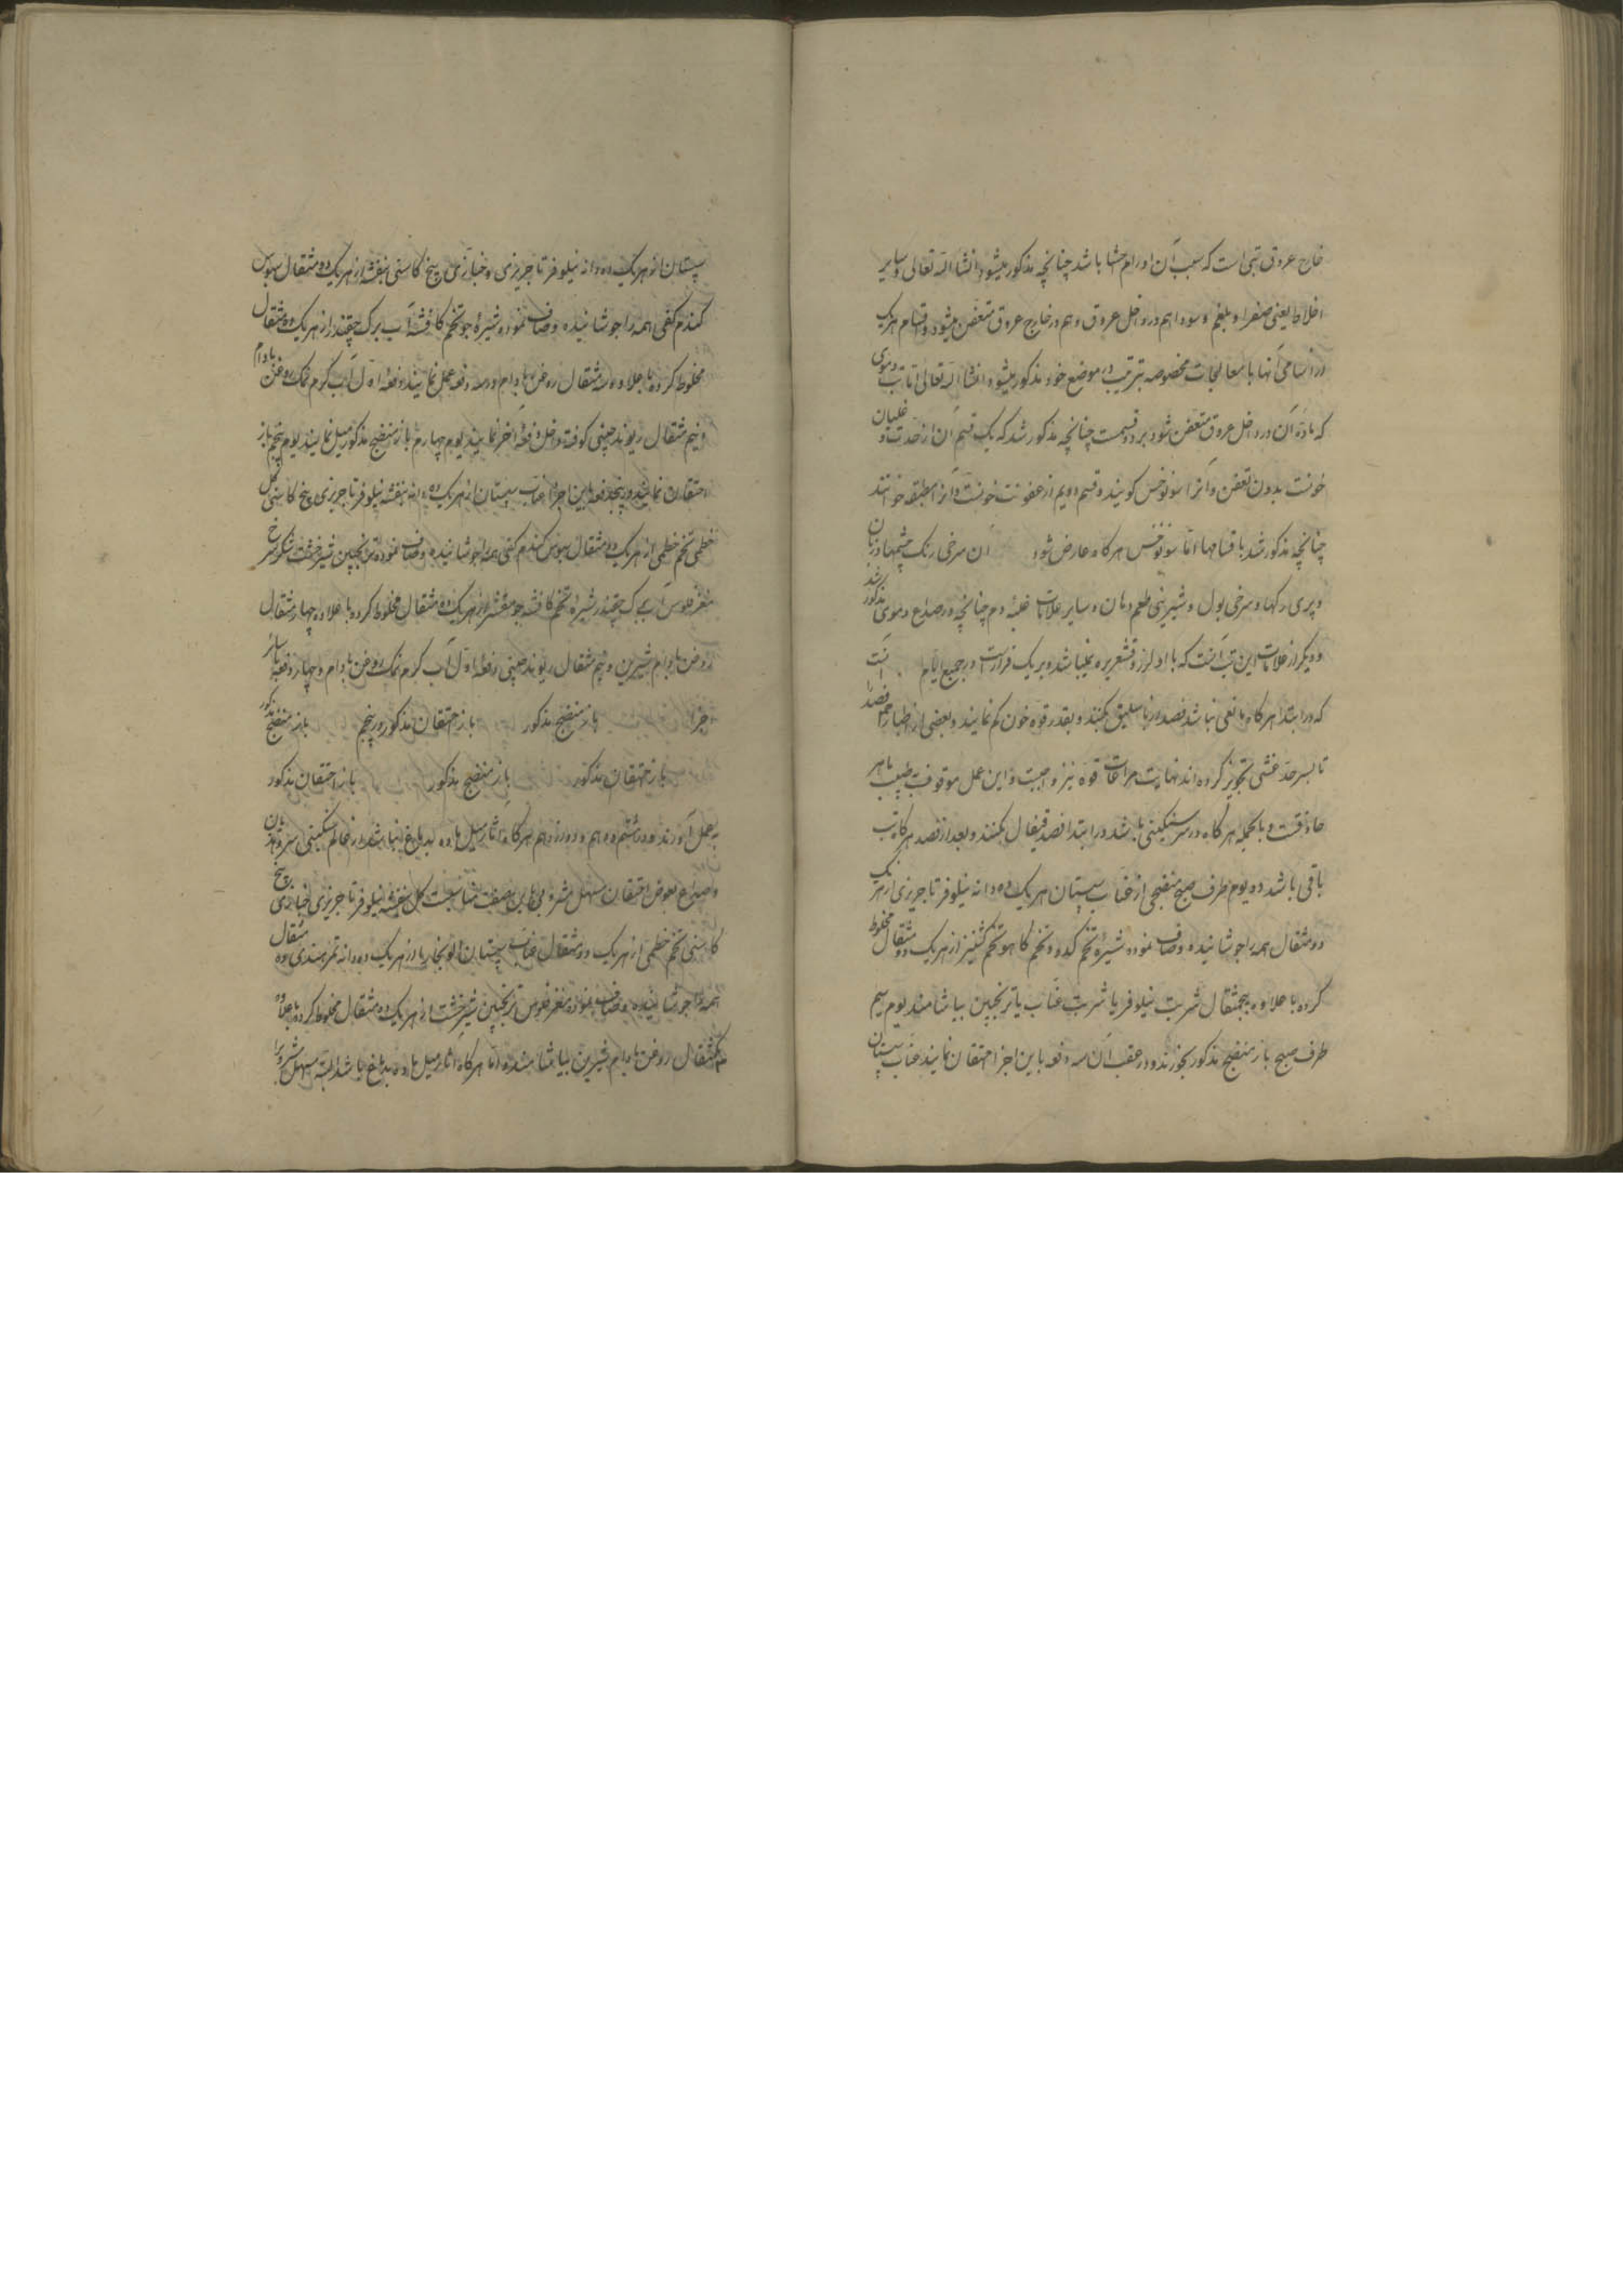 خارج عروق تبی است که سبب آن اورام احشا باشد چنانچه مذکور میشود انشا الله تعالی و سایر
اخلاط یعنی صفرا و بلغم و سودا هم در داخل عروق و هم در خارج عروق متعفن میشود و اقسام هر یک
در اسامی آنها با معالجات مخصوصه بترتیب در موضع خود مذکور میشود انشا الله تعالی اما تب دموی
که ماده آن در داخل عروق متعفن شود بر دو قسمست چنانچه مذکور شد که یک قسم آن از حدت و غلیان
خونست بدون تعفن و آنرا سونوخس کویند و قسم دویم از عفونت خونست و آنرا مطبقه خوانند
چنانچه مذکور شد باقسامها اما سونوخس هر کاه عارض شود آن سرخی رنک چشمها و زبان
و پری رکها و سرخی بول و شیرینی طعم دهان و سایر علامات غلبه دم چنانچه در صداع دموی مذکور شد
و دیکر از علامات این تب آنست که با او لرز و قشعریره نمیباشد و بر یک قرارست در جمیع ایام آنست
که در ابتدا هر کاه مانعی نباشد فصد از باسلیق بکنند و بقدر قوه خون کم نمایند و بعضی از اطبا فصد را
تا بسر حد غشی تجویز کرده اند نهایت مراعات قوه نیز واجبست و این عمل موقوف بطبیب ماهر
حاذقست و بالجمله هر کاه در سر سنکینی باشد در ابتدا فصد قیفال بکنند و بعد از فصد هر کاه تب
باقی باشد دو یوم طرف صبح منضجی از عناب سپستان هر یک ده دانه نیلوفر تاجریزی از هر یک
دو مثقال همه را جوشانیده و صاف نموده شیره تخم کدو و تخم کاهو تخم کشنیز از هر یک دو مثقال مخلوط
کرده با علاوه پنجمثقال شربت نیلوفر یا شربت عناب یا ترنجبین بیاشامند یوم سیم
طرف صبح باز منضج مذکور بخورند و در عقب آن سه دفعه باین اجزا احتقان نمایند عناب سپستان
سپستان از هر یک ده دانه نیلوفر تاجریزی و خبازی بیخ کاسنی بنفشه از هر یک دو مثقال سبوس
کندم کفی همه را جوشانیده و صاف نموده شیره جو تخم کافشه آب برک چقندر از هر یک ده مثقال
مخلوط کرده با علاوه سه مثقال روغن بادام و در سه دفعه عمل نمایند دفعه اول آب کرم نمک روغن بادام
و نیم مثقال ریوند چینی کوفته داخل دفعه آخر نمایند یوم چهارم باز منضج مذکور میل نمایند یوم پنجم باز
احتقان نمایند در پنجدفعه باین اجزا عناب سپستان از هر یک ده دانه بنفشه نیلوفر تاجریزی بیخ کاسنی کل
خطمی تخم خطمی از هر یک دو مثقال سبوس کندم کفی همه را جوشانیده و صاف نموده ترنجبین شیرخشت شکر سرخ
مغز فلوس آب برک چقندر شیره تخم کافشه جو مقشر از هر یک ده مثقال مخلوط کرده با علاوه چهار مثقال
روغن بادام شیرین و نیم مثقال ریوند چینی دفعه اول آب کرم نمک روغن بادام و چهار دفعه با سائر
اجزا باز منضج مذکور باز احتقان مذکور در پنجم باز منضج مذکور
باز احتقان مذکور باز منضج مذکور باز احتقان مذکور
بعمل آورند و در هشتم و دهم و دوازدهم هر کاه آثار میل ماده بدماغ نباشد از عالم سنکینی سر و هذیان
و صداع بعوض احتقان مسهل مشروبی باین صفت مناسبست کل بنفشه نیلوفر تاجریزی خبازی بیخ
کاسنی تخم خطمی از هر یک دو مثقال عناب سپستان آلو بخارا از هر یک ده دانه تمر هندی ده مثقال
همه را جوشانیده و صاف نموده مغز فلوس ترنجبین شیرخشت از هر یک ده مثقال مخلوط کرده با علاوه
یکمثقال روغن بادام شیرین بیاشامند و اما هر کاه آثار میل ماده بدماغ باشد البته مسهل مشروبرا